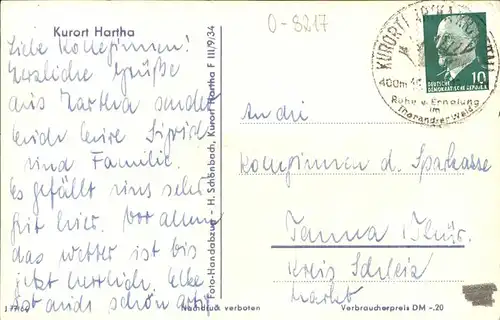 Kurort Hartha
O-8217
Liebe Kolleginnen!
Herzliche Grüße
aus Hartha sendet
Euch Eure Sigrid
und Familie.
Es gefällt uns sehr
gut hier. Vor allem
das Wetter ist bis
jetzt herrlich.
ist auch schön
1 77/64
Foto-Handabzug - H. Schönbach, Kurort Hartha F III/9/34
KURORT HARTHA
400m
Ruhe u. Erholung
im
Tharandter Wald
DEUTSCHE
DEMOKRATISCHE REPUBLIK
10
An die
Kolleginnen d. Sparkasse
Tanna Thür.
Kreis Schleiz
Markt
Nachdruck verboten
Verbraucherpreis DM -.20